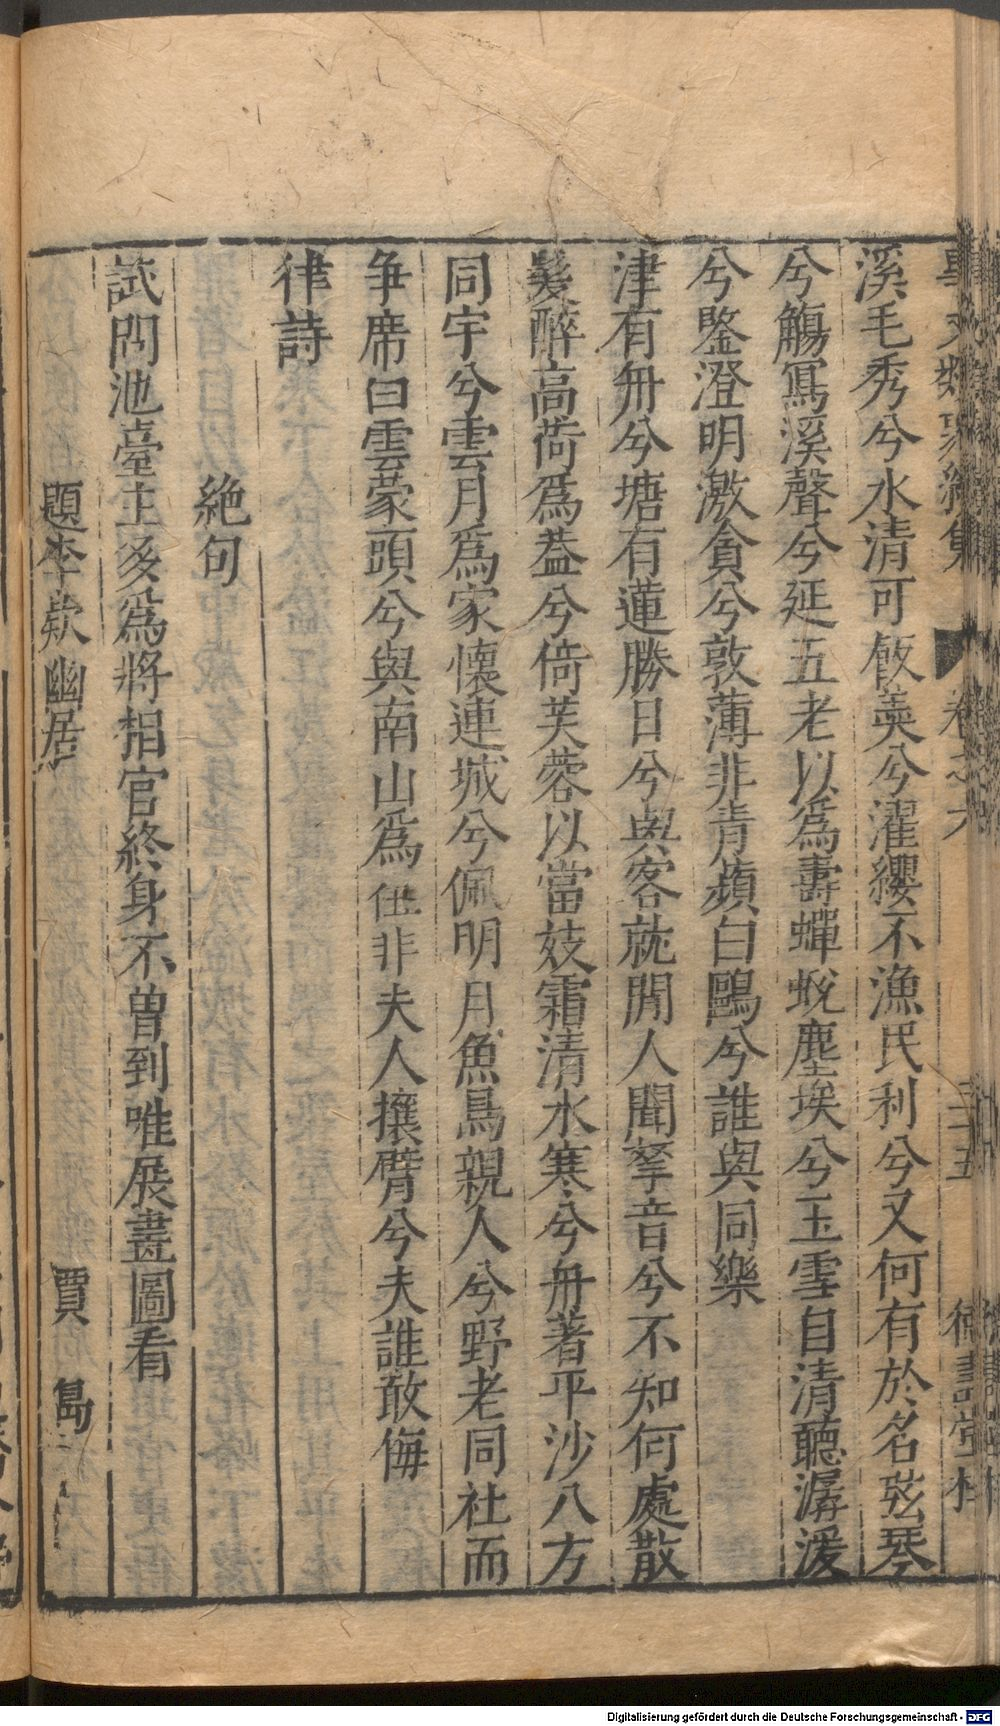 事文類聚續集 卷之六 三十五 德壽堂梓
溪毛秀兮水清可飯羹兮濯纓不漁民利兮又何有於名弦琴
兮觴寫溪聲兮延五老以爲壽蟬蛻塵埃兮玉雪自清聽潺湲
兮鑒澄明激貪兮敦薄非青蘋白鷗兮誰與同樂
津有舟兮塘有蓮勝日兮與客就閒人聞拏音兮不知何處散
髮醉高荷爲葢兮倚芙蓉以當妓霜清水寒兮舟著平沙八方
同宇兮雲月爲家懷連城兮佩明月魚鳥親人兮野老同社而
争席白雲蒙頭兮與南山爲伍非夫人攘臂兮夫誰敢侮
律詩
絶句
試問池臺主多爲將相官終身不曽到唯展畫圖看
題李欵幽居 賈島
Digitalisierung gefördert durch die Deutsche Forschungsgemeinschaft - DFG